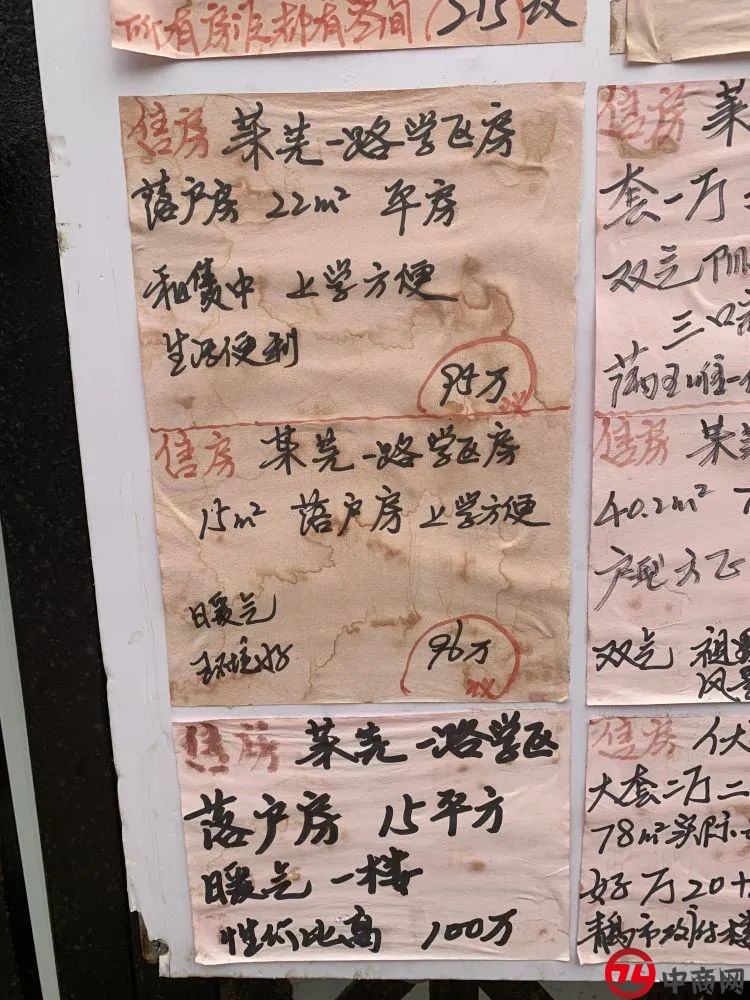 所有房源都有空间 215 议
售房 莱芜一路学区房
落户房 22m² 平房
租赁中 上学方便
生活便利
95万
议
售房 莱芜一路学区房
15m² 落户房 上学方便
暖气
环境好
96万
议
售房 莱芜一路学区
落户房 15平方
暖气 一楼
性价比高 100万
售房 莱
套一厅
双气 阳
三口
满五唯一
售房 莱芜
40.2m²
户型方正
双气
售房
大套二厅二
78m²实际
好 万20+
青岛市政府
中商网